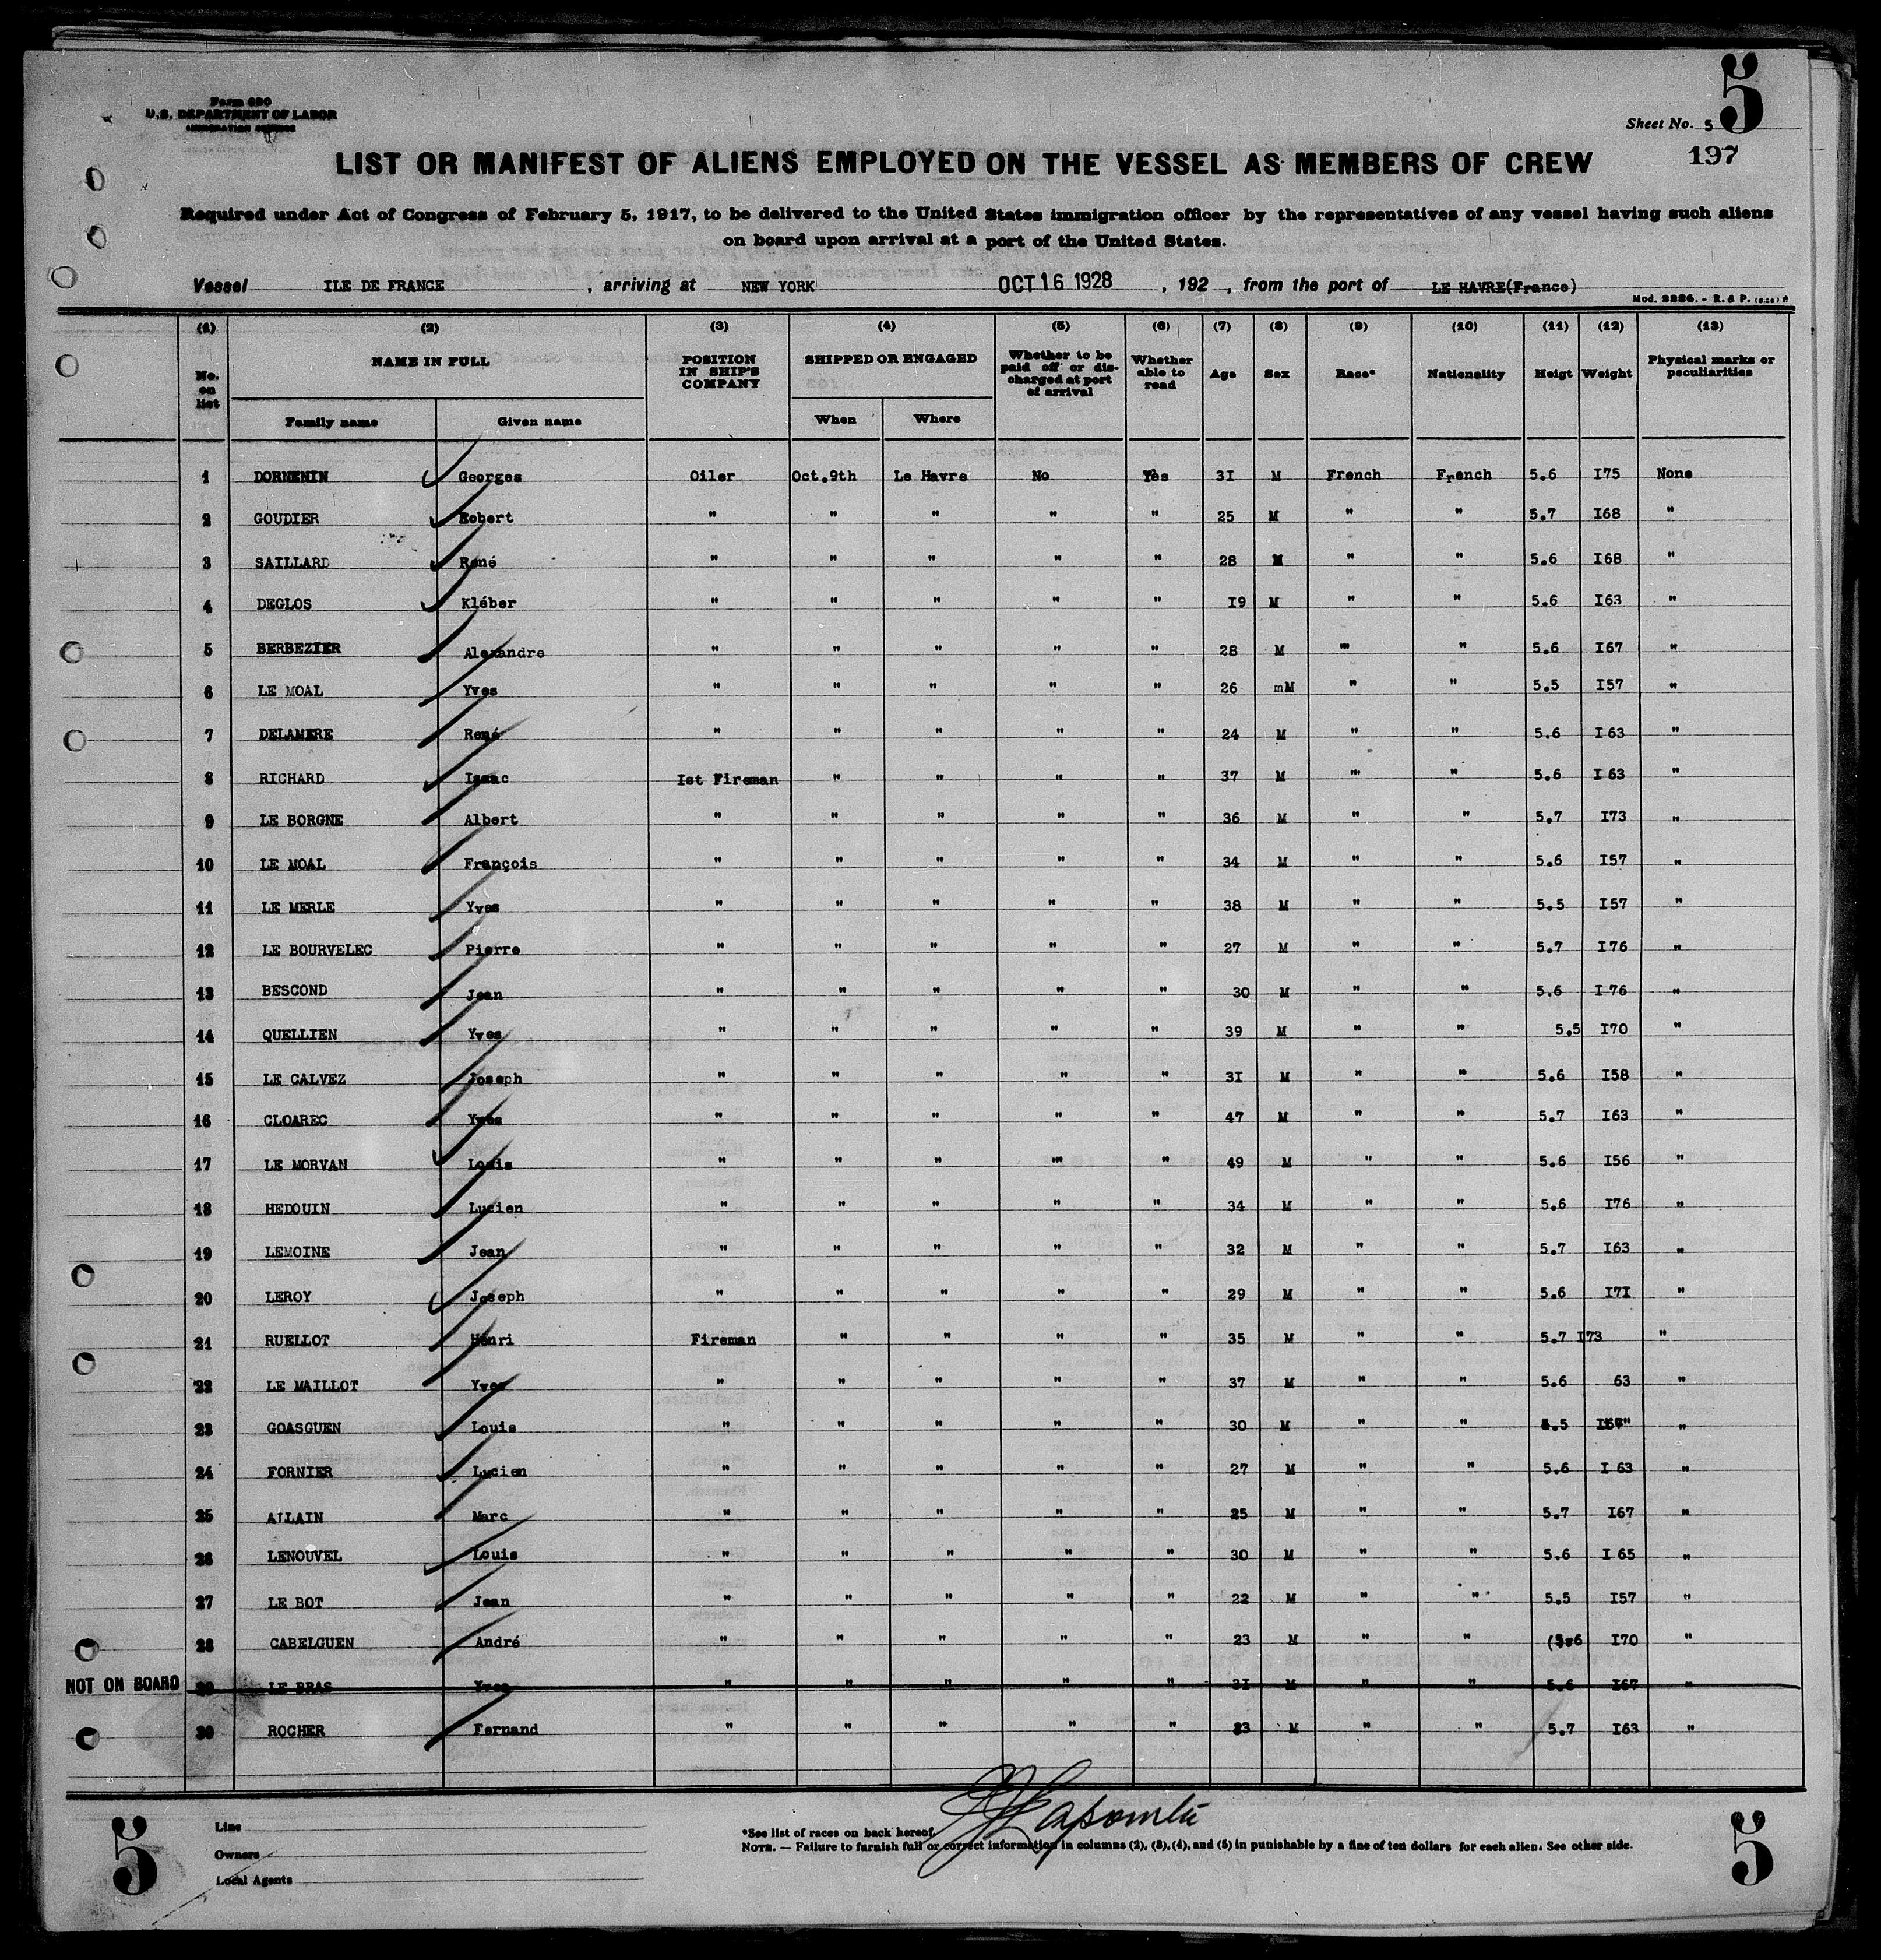 5
Form 680
U.S. DEPARTMENT OF LABOR
IMMIGRATION SERVICE
Sheet No. 5
197
LIST OR MANIFEST OF ALIENS EMPLOYED ON THE VESSEL AS MEMBERS OF CREW
Required under Act of Congress of February 5, 1917, to be delivered to the United States immigration officer by the representatives of any vessel having such aliens
on board upon arrival at a port of the United States.
Vessel ILE DE FRANCE , arriving at NEW YORK OCT 16 1928 , 192 , from the port of LE HAVRE(France)
Mod. 2286. - R. & P.
(1) (2) (3) (4) (5) (6) (7) (8) (9) (10) (11) (12) (13)
No. on list NAME IN FULL POSITION IN SHIP'S COMPANY SHIPPED OR ENGAGED Whether to be paid off or discharged at port of arrival Whether able to read Age Sex Race* Nationality Heigt Weight Physical marks or peculiarities
Family name Given name When Where
1 DORMENIN Georges Oiler Oct.9th Le Havre No Yès 3I M French French 5.6 I75 None
2 GOUDIER Robert " " " " " 25 M " " 5.7 I68 "
3 SAILLARD René " " " " " 28 M " " 5.6 I68 "
4 DEGLOS Kléber " " " " " I9 M " " 5.6 I63 "
5 BERBEZIER Alexandre " " " " " 28 M " " 5.6 I67 "
6 LE MOAL Yves " " " " " 26 mM " " 5.5 I57 "
7 DELAMERE René " " " " " 24 M " " 5.6 I63 "
8 RICHARD Isaac Ist Fireman " " " " 37 M " " 5.6 I63 "
9 LE BORGNE Albert " " " " " 36 M " " 5.7 I73 "
10 LE MOAL François " " " " " 34 M " " 5.6 I57 "
11 LE MERLE Yves " " " " " 38 M " " 5.5 I57 "
12 LE BOURVELEC Pierre " " " " " 27 M " " 5.7 I76 "
13 BESCOND Jean " " " " " 30 M " " 5.6 I76 "
14 QUELLIEN Yves " " " " " 39 M " " 5.5 I70 "
15 LE CALVEZ Joseph " " " " " 3I M " " 5.6 I58 "
16 CLOAREC Yves " " " " " 47 M " " 5.7 I63 "
17 LE MORVAN Louis " " " " " 49 M " " 5.6 I56 "
18 HEDOUIN Lucien " " " " " 34 M " " 5.6 I76 "
19 LEMOINE Jean " " " " " 32 M " " 5.7 I63 "
20 LEROY Joseph " " " " " 29 M " " 5.6 I7I "
21 RUELLOT Henri Fireman " " " " 35 M " " 5.7 I73 "
22 LE MAILLOT Yves " " " " " 37 M " " 5.6 63 "
23 GOASGUEN Louis " " " " " 30 M " " 5.5 "
24 FORNIER Lucien " " " " " 27 M " " 5.6 I 63 "
25 ALLAIN Marc " " " " " 25 M " " 5.7 I67 "
26 LENOUVEL Louis " " " " " 30 M " " 5.6 I 65 "
27 LE BOT Jean " " " " " 22 M " " 5.5 I57 "
28 CABELGUEN André " " " " " 23 M " " (5.6 I70 "
NOT ON BOARD 29 LE BRAS Yves " " " " " 31 M " " 5.6 I67 "
30 ROCHER Fernand " " " " " 33 M " " 5.7 I63 "
5
Line
Owners
Local Agents
*See list of races on back hereof.
NOTE. — Failure to furnish full or correct information in columns (2), (3), (4), and (5) in punishable by a fine of ten dollars for each alien. See other side.
5